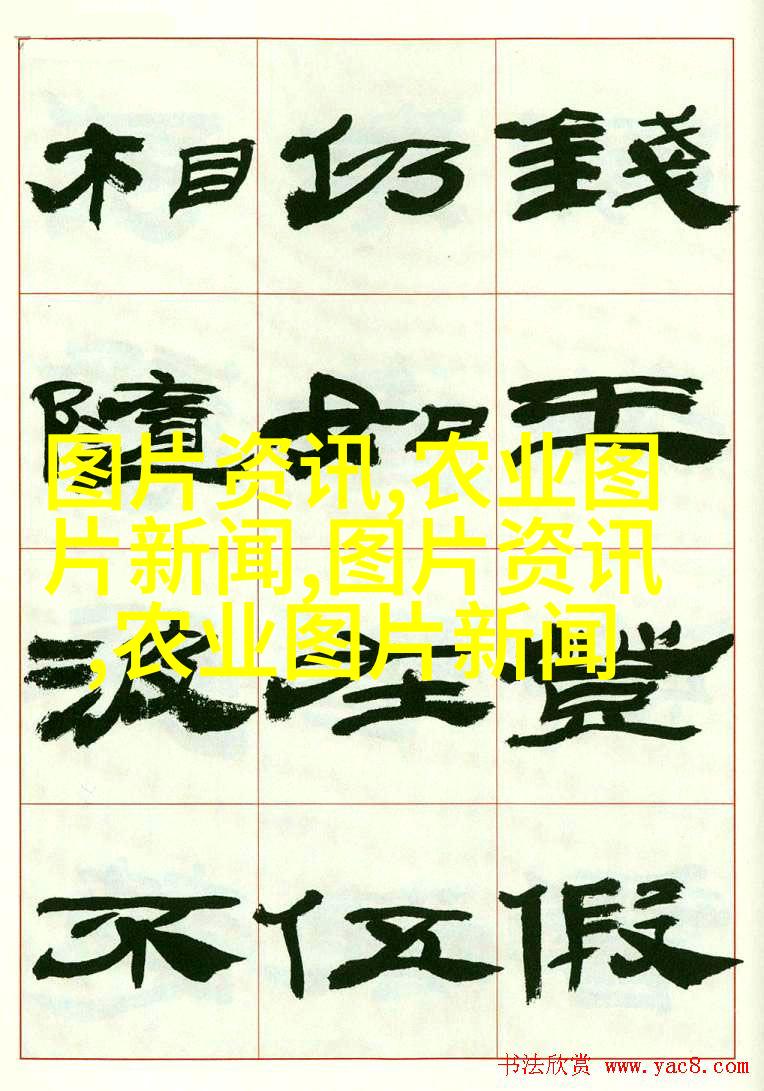 錢王豐假
仍如伍
相隨波不
图片资讯,农业图
片新闻,图片资讯
,农业图片新闻
书法欣赏 www.yac8.com